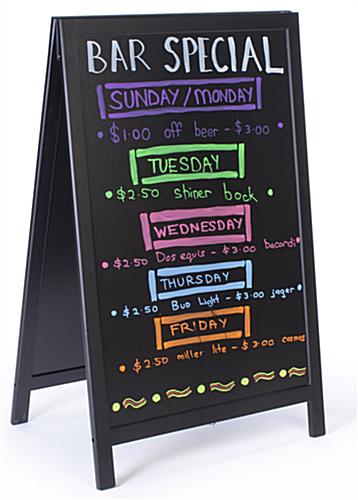 BAR SPECIAL
SUNDAY/MONDAY
• $1.00 off beer - $3.00 •
TUESDAY
• $2.50 shiner bock •
WEDNESDAY
• $2.50 Dos equis - $3.00 bacardi •
THURSDAY
• $2.50 Bud Light - $3.00 jager •
FRIDAY
• $2.50 miller lite - $3.00 cosmos •